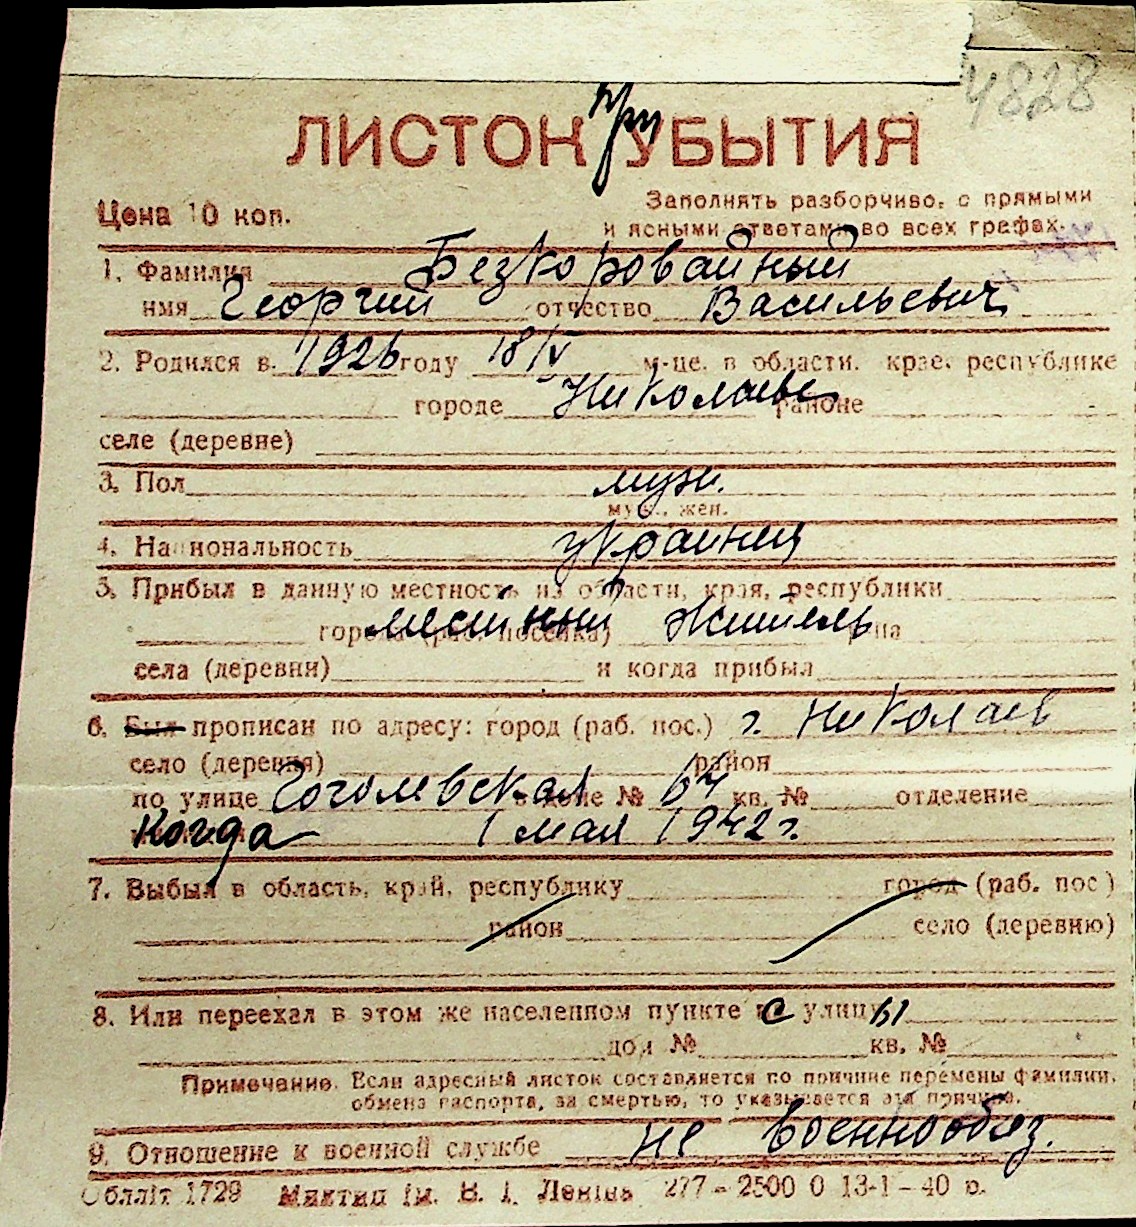 4828
ЛИСТОК При УБЫТИЯ
Цена 10 коп.
Заполнять разборчиво, с прямыми
и ясными ответами во всех графах.
1. Фамилия Безкоровайный
имя Георгий отчество Васильевич
2. Родился в 1926 году 18/IV м-це. в области. крае. республике
городе Николаеве районе
селе (деревне)
3. Пол муж.
муж., жен.
4. Национальность украинец
5. Прибыл в данную местность из области, края, республики
города (раб. поселка) местный житель
села (деревни) и когда прибыл
6. Был прописан по адресу: город (раб. пос.) г. Николаев
село (деревня) район
по улице Гоголевская в доме № 64 кв. № отделение
Когда 1 мая 1942 г.
7. Выбыл в область, край, республику город (раб. пос)
район село (деревню)
8. Или переехал в этом же населенном пункте с улицы
дом № кв. №
Примечание. Если адресный листок составляется по причине перемены фамилии,
обмена паспорта, за смертью, то указывается эта причина.
9. Отношение к военной службе не военнообяз.
Обллiт 1729 Миктип iм. В. I. Ленiна 277 – 2500 0 13-1 – 40 р.